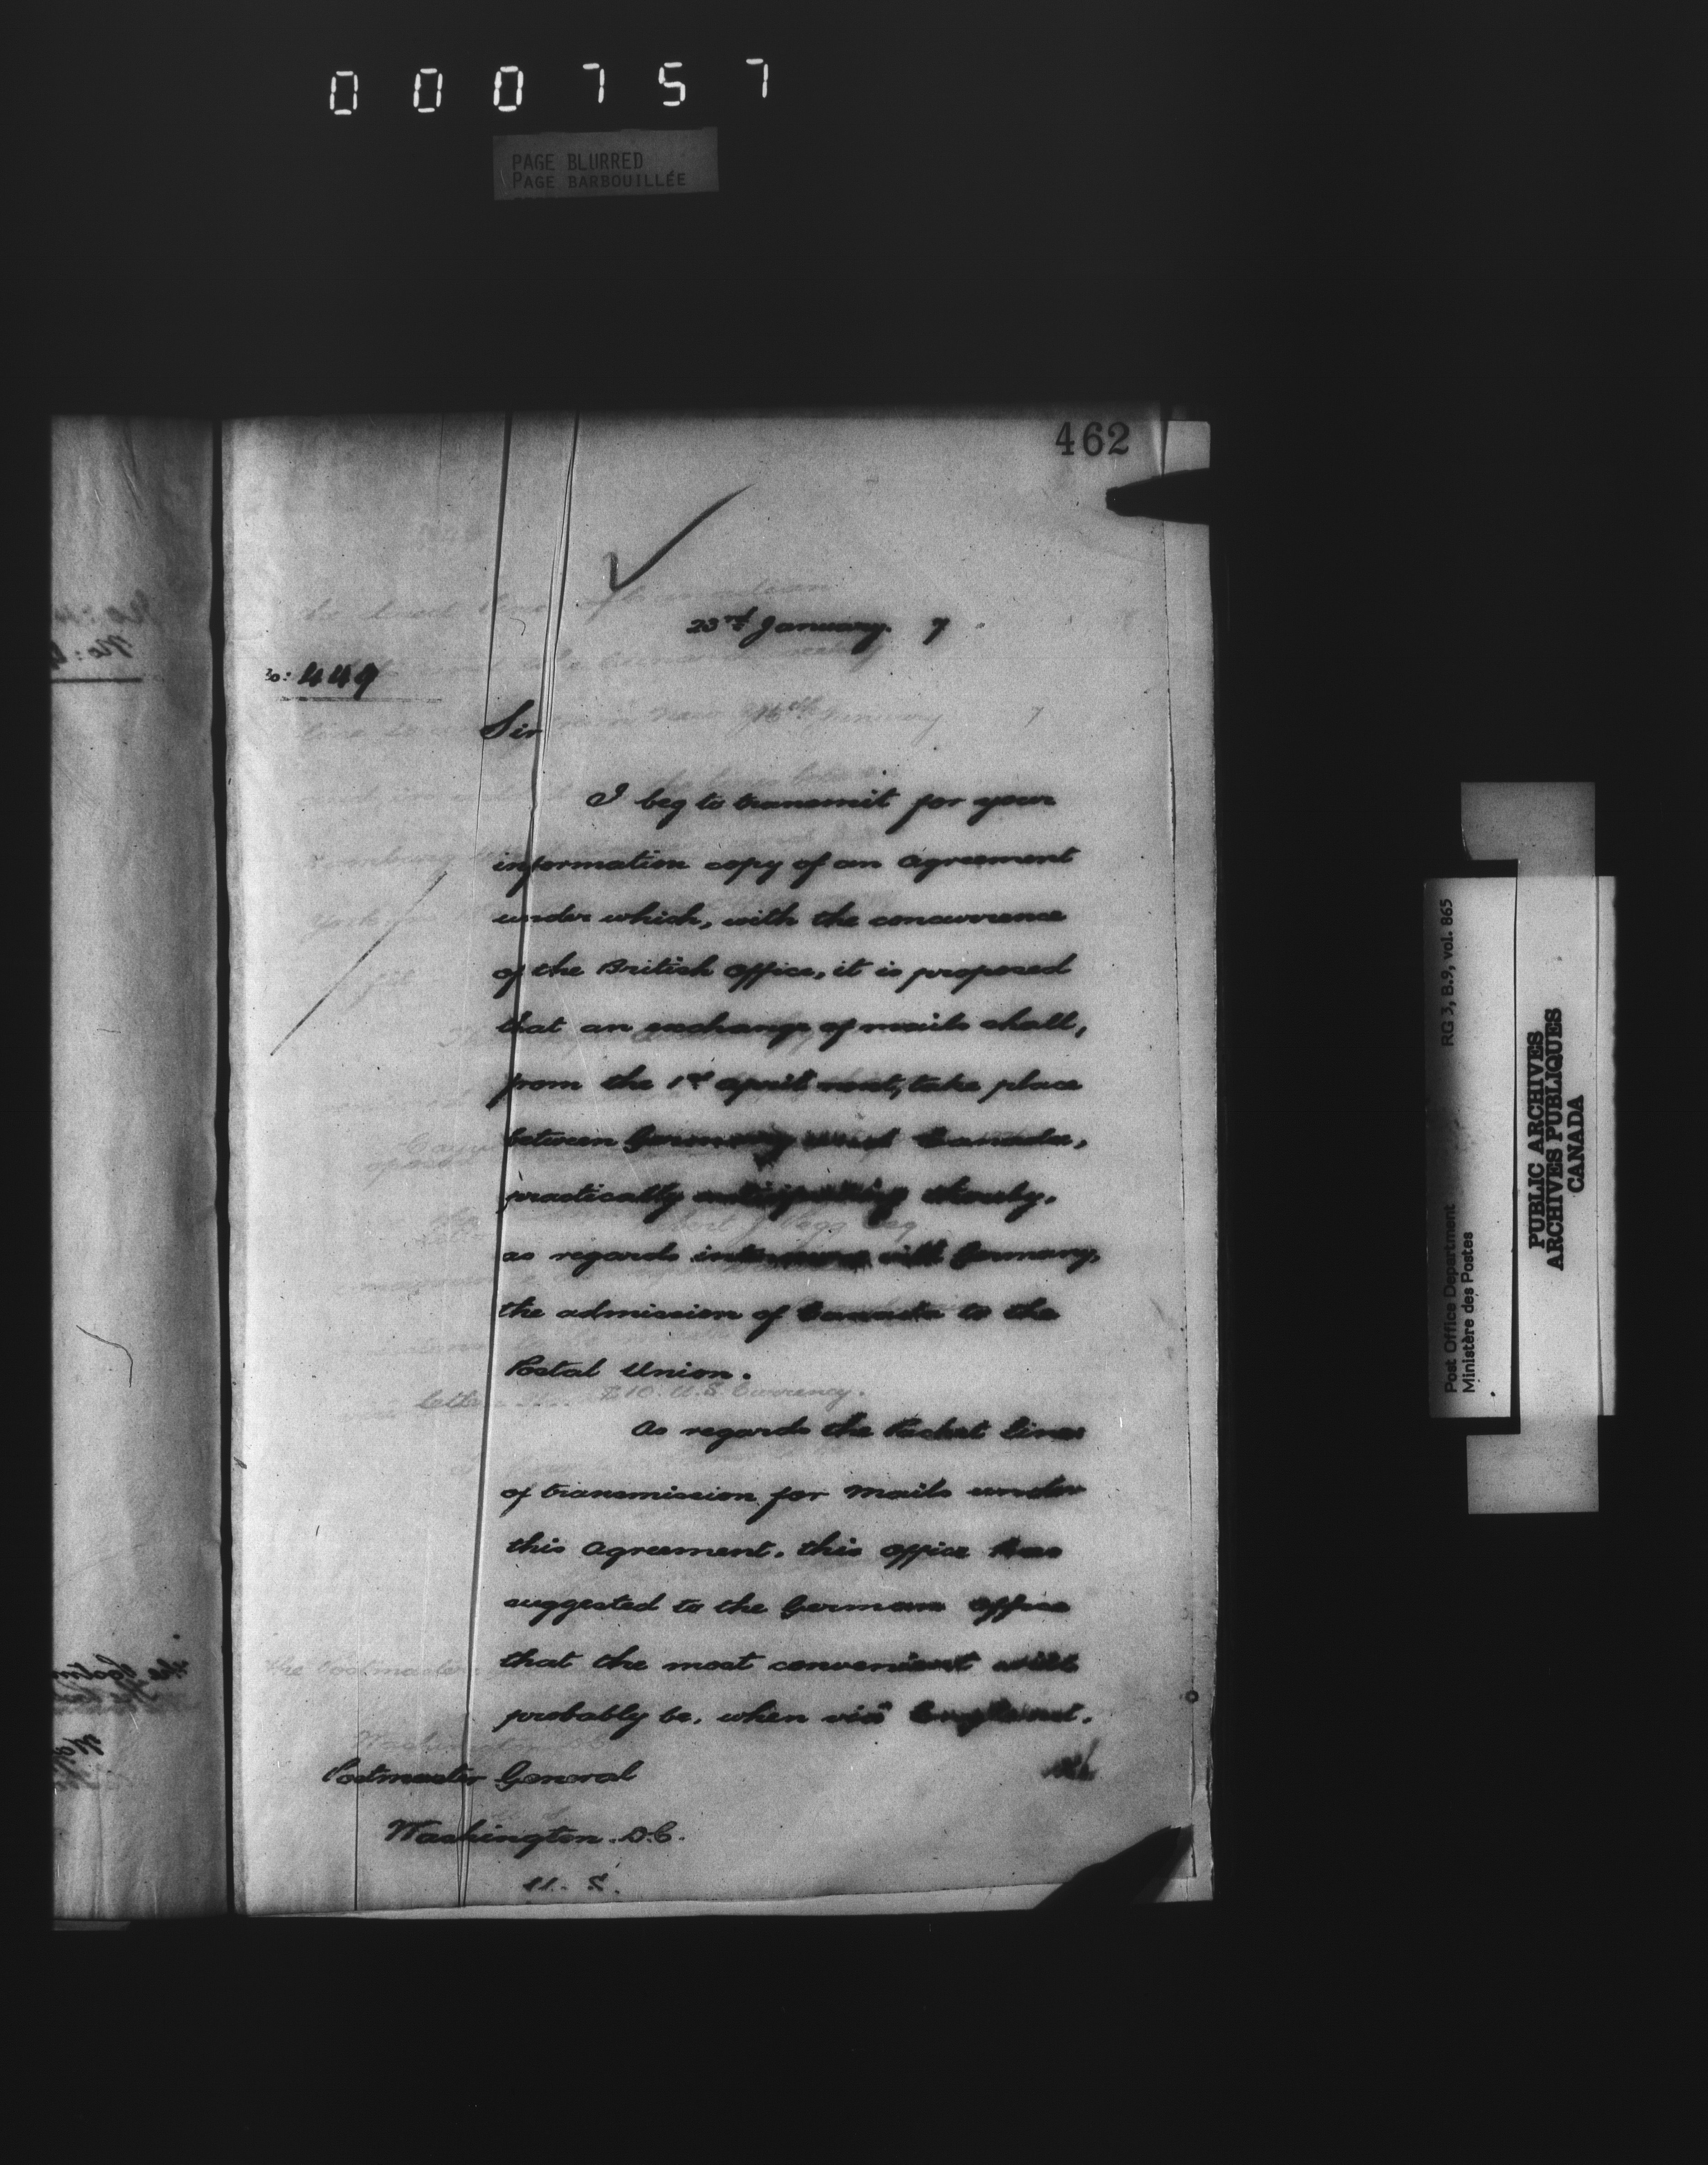 000757
PAGE BLURRED
PAGE BARBOUILLÉE
462
23rd January. 7
No: 449
Sir
I beg to transmit for your
information copy of an Agreement
under which, with the concurrence
of the British Office, it is proposed
that an exchange of mails shall,
from the 1st April next, take place
between Germany and Canada,
practically anticipating thereby,
as regards intercourse with Germany,
the admission of Canada to the
Postal Union.
As regards the Packet lines
of transmission for Mails under
this Agreement, this office has
suggested to the German Office
that the most convenient will
probably be, when viâ England,
the
Postmaster General
Washington. D.C.
U. S.
Post Office Department RG 3, B.9, vol. 865
Ministère des Postes
PUBLIC ARCHIVES
ARCHIVES PUBLIQUES
CANADA